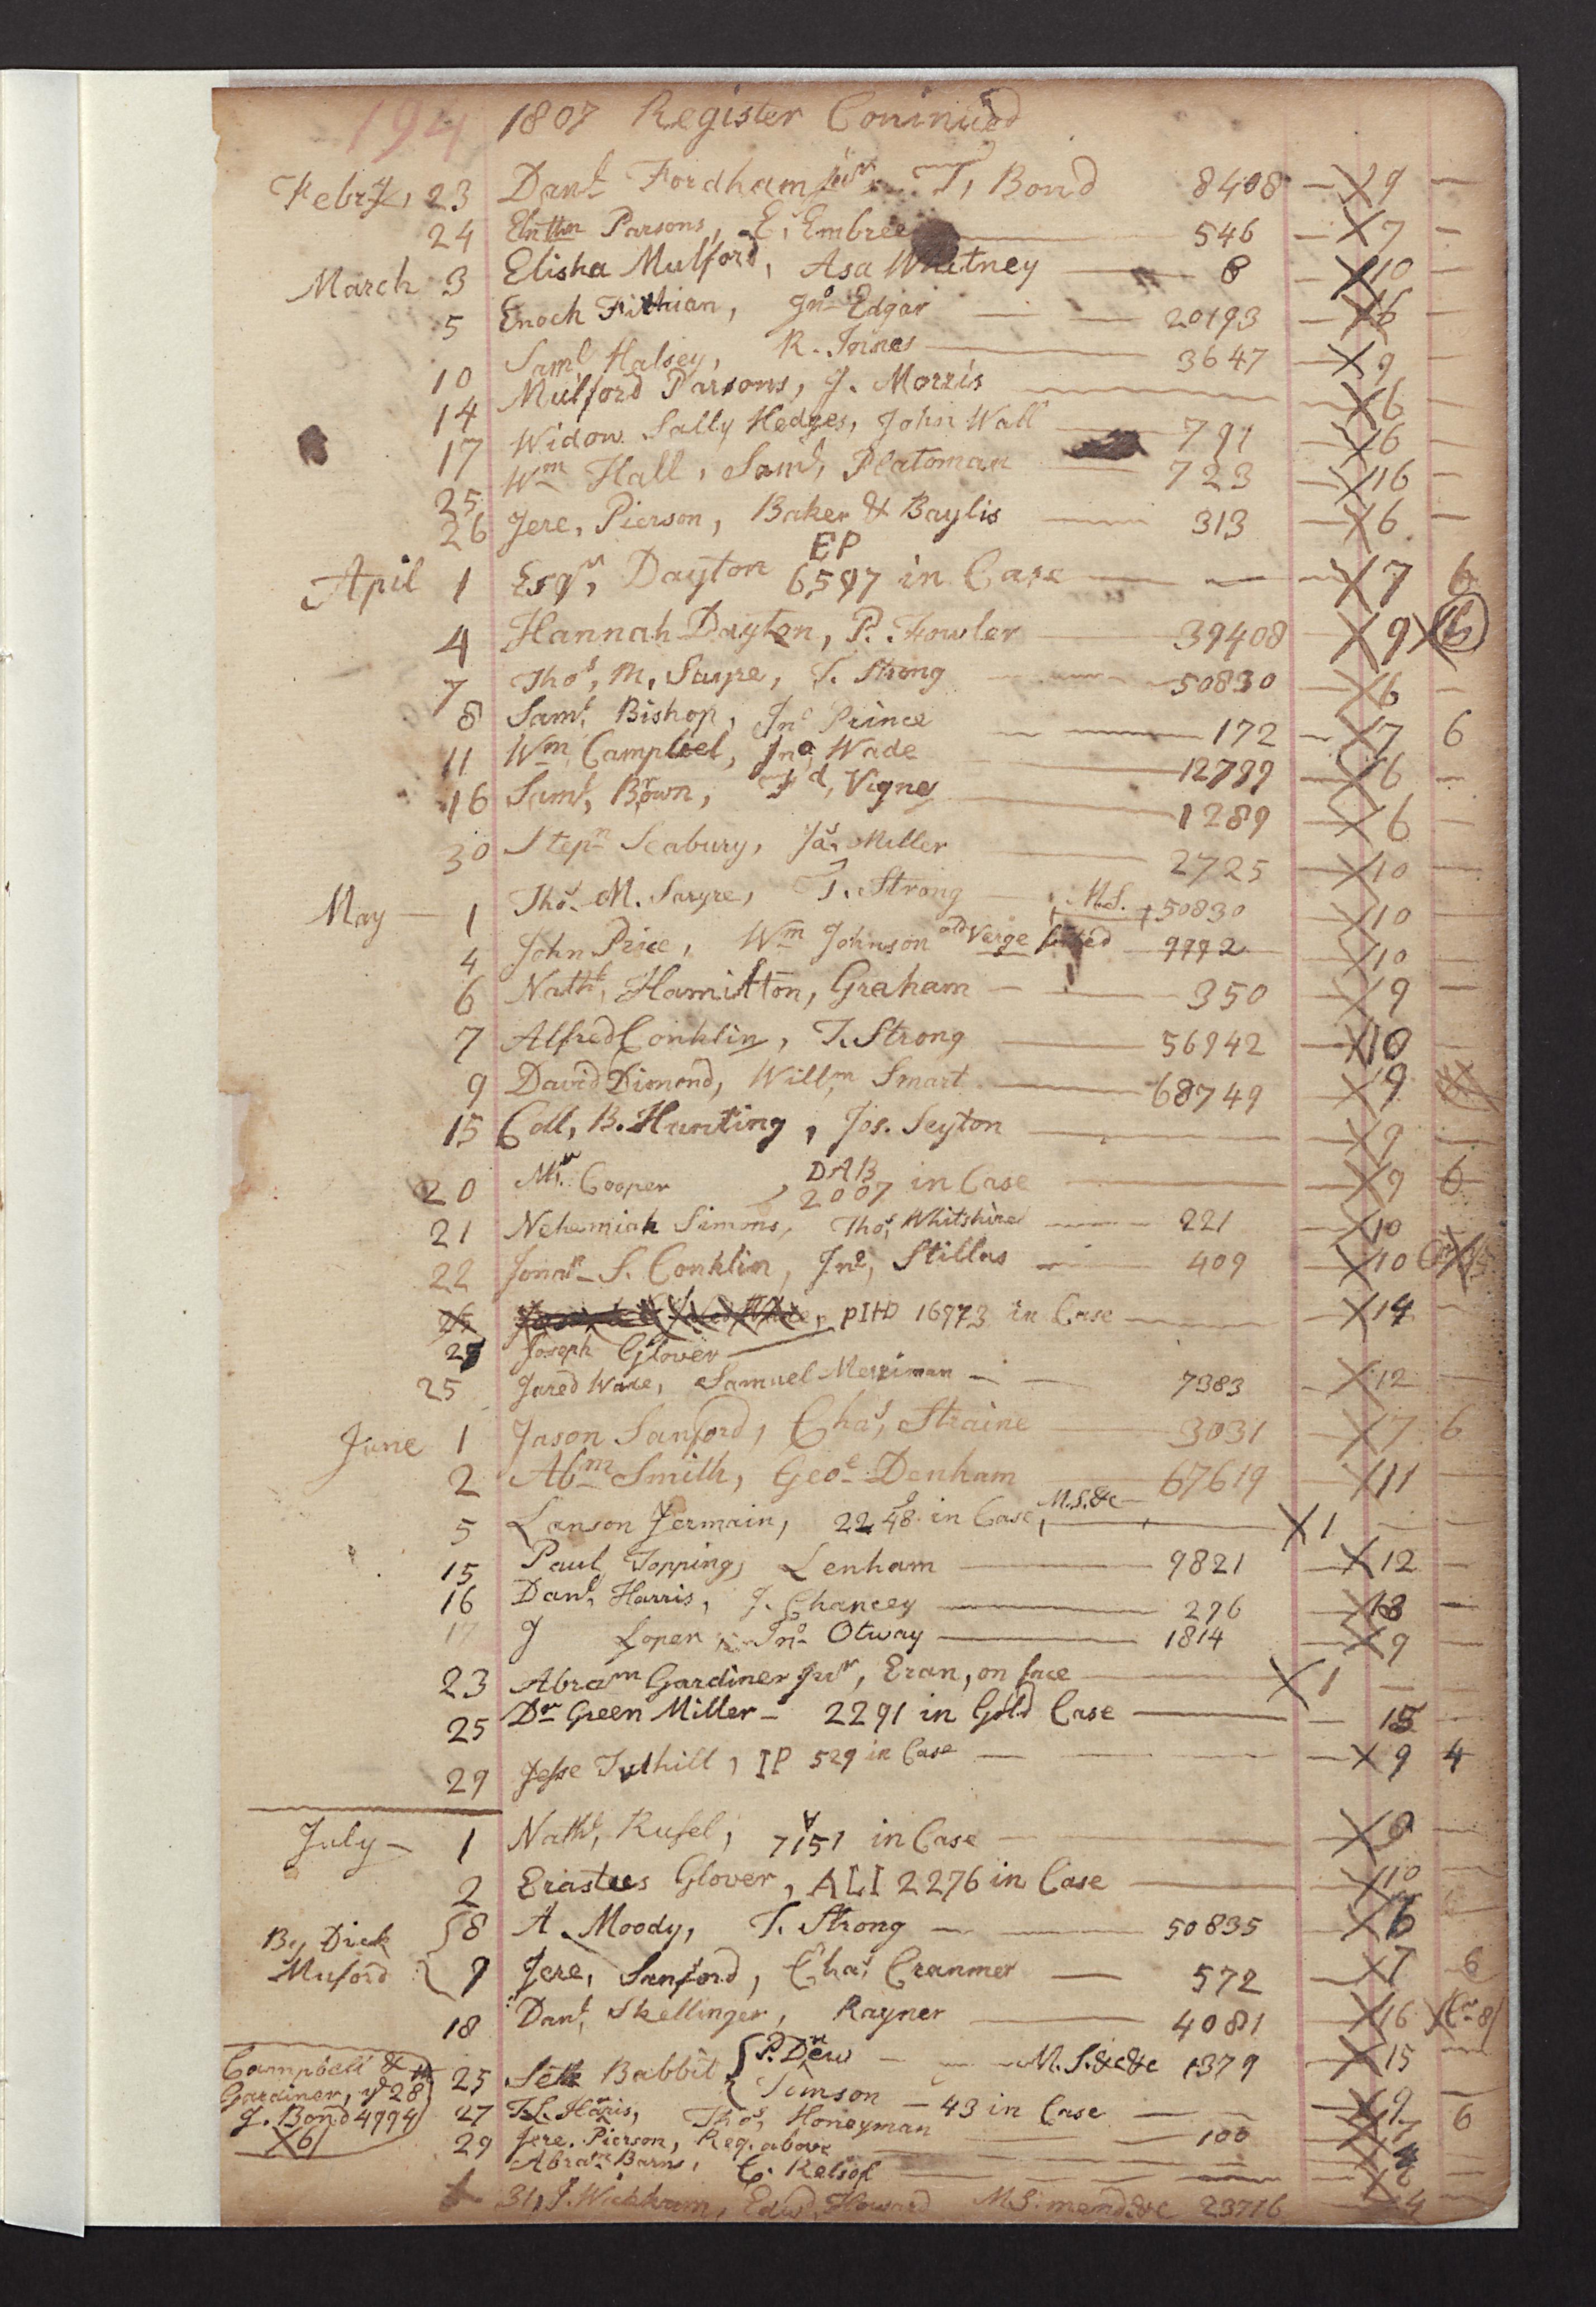 194 1807 Register Coninued
Febry, 23 Danl Fordham Junr T, Bond 8408 — X 9 —
24 Elnthn Parsons, E, Embree 546 — X 7 —
March 3 Elisha Mulford, Asa Whitney 8 — X 10 —
5 Enoch Fithian, Jno Edgar 20193 — X 6 —
Saml Halsey, R. Joines 3647 — X 9 —
10 Mulford Parsons, J. Morris — X 6 —
14 Widow Sally Hedges, John Wall 791 — X 6 —
17 Wm Hall, Saml, Platoman 723 — X 16 —
25
26 Jere, Pierson, Baker & Baylis 313 — X 6 —
April 1 Esqr, Dayton EP 6597 in Case — X 7 6
4 Hannah Dayton, P. Fowler 39408 — X 9 X 6
7 Thos, M, Sayre, T. Strong 50830 — X 6 —
8 Saml, Bishop, Jno Prince 172 — X 7 6
11 Wm Campbel, Jno Wade 12799 — X 6 —
16 Saml, Brown, Fd, Vigne 1289 — X 6 —
30 Stepn Seabury, Jas, Miller 2725 — X 10 —
May — 1 Thos M. Sayre, T. Strong M.S. 50830 — X 10 —
4 John Price, Wm Johnson old Verge 9992 — X 10 —
6 Nathl, Hamilton, Graham — 350 — X 9 —
7 Alfred Conklin, T. Strong 56942 — X 10 —
9 David Dimond, Willm Smart 68749 — X 9
15 Coll, B. Hunting, Jos. Seyton — X 9 —
20 Mr. Cooper, DAB 2007 in Case — X 9 6
21 Nehemiah Simons, Thos, Whitshire 221 — X 10
22 Jonan S. Conklin, Jno, Stillas 409 — X 10
PIHD 16973 in Case — X 14 —
25 Joseph Glover
25 Jared Ware, Samuel Merriman — 7383 — X 12 —
June 1 Jason Sanford, Chas, Straine 3031 — X 7 6
2 Abm Smith, Geoe Denham 67619 — X 11
5 Lanson Jermain, 2248 in Case, M.S.&c — X 1 — —
15 Paul Topping, Lenham 9821 — X 12 —
16 Danl, Harris, J. Chancey 296 — X 13 —
17 J Loper, Jno Otway 1814 — X 9 —
23 Abram Gardiner Junr, Eran, on face — X 1 — —
25 Dr Green Miller — 2291 in Gold Case — 15 —
29 Jesse Tuthill, IP 529 in Case — X 9 4
July — 1 Nathl, Rusel, A 7151 in Case — X 9 —
2 Erastus Glover, ALI 2276 in Case — X 10 —
By Dick { 8 A. Moody, T. Strong 50835 — X 6
Muford { 9 Jere, Sanford, Chas, Cranmer — 572 — X 7 6
18 Danl, Skellinger, Rayner 4081 — X 16 X Cr 8
Campbell & 25 Seth Babbit { P. Drew — M. S.&c&c 1379 — X 15 —
Gardiner, ye 28 { Timson — 43 in Case — X 9 —
J. Bond 4994 27 T.S. Harris, Thos, Honeyman 100 — X 7 6
X 6 29 Jere. Pierson, Reg. above — X
Abram Barns, C. — X
31, J. Wickham, Edwd, Howard M S: memd&c 23716 — X 4 —